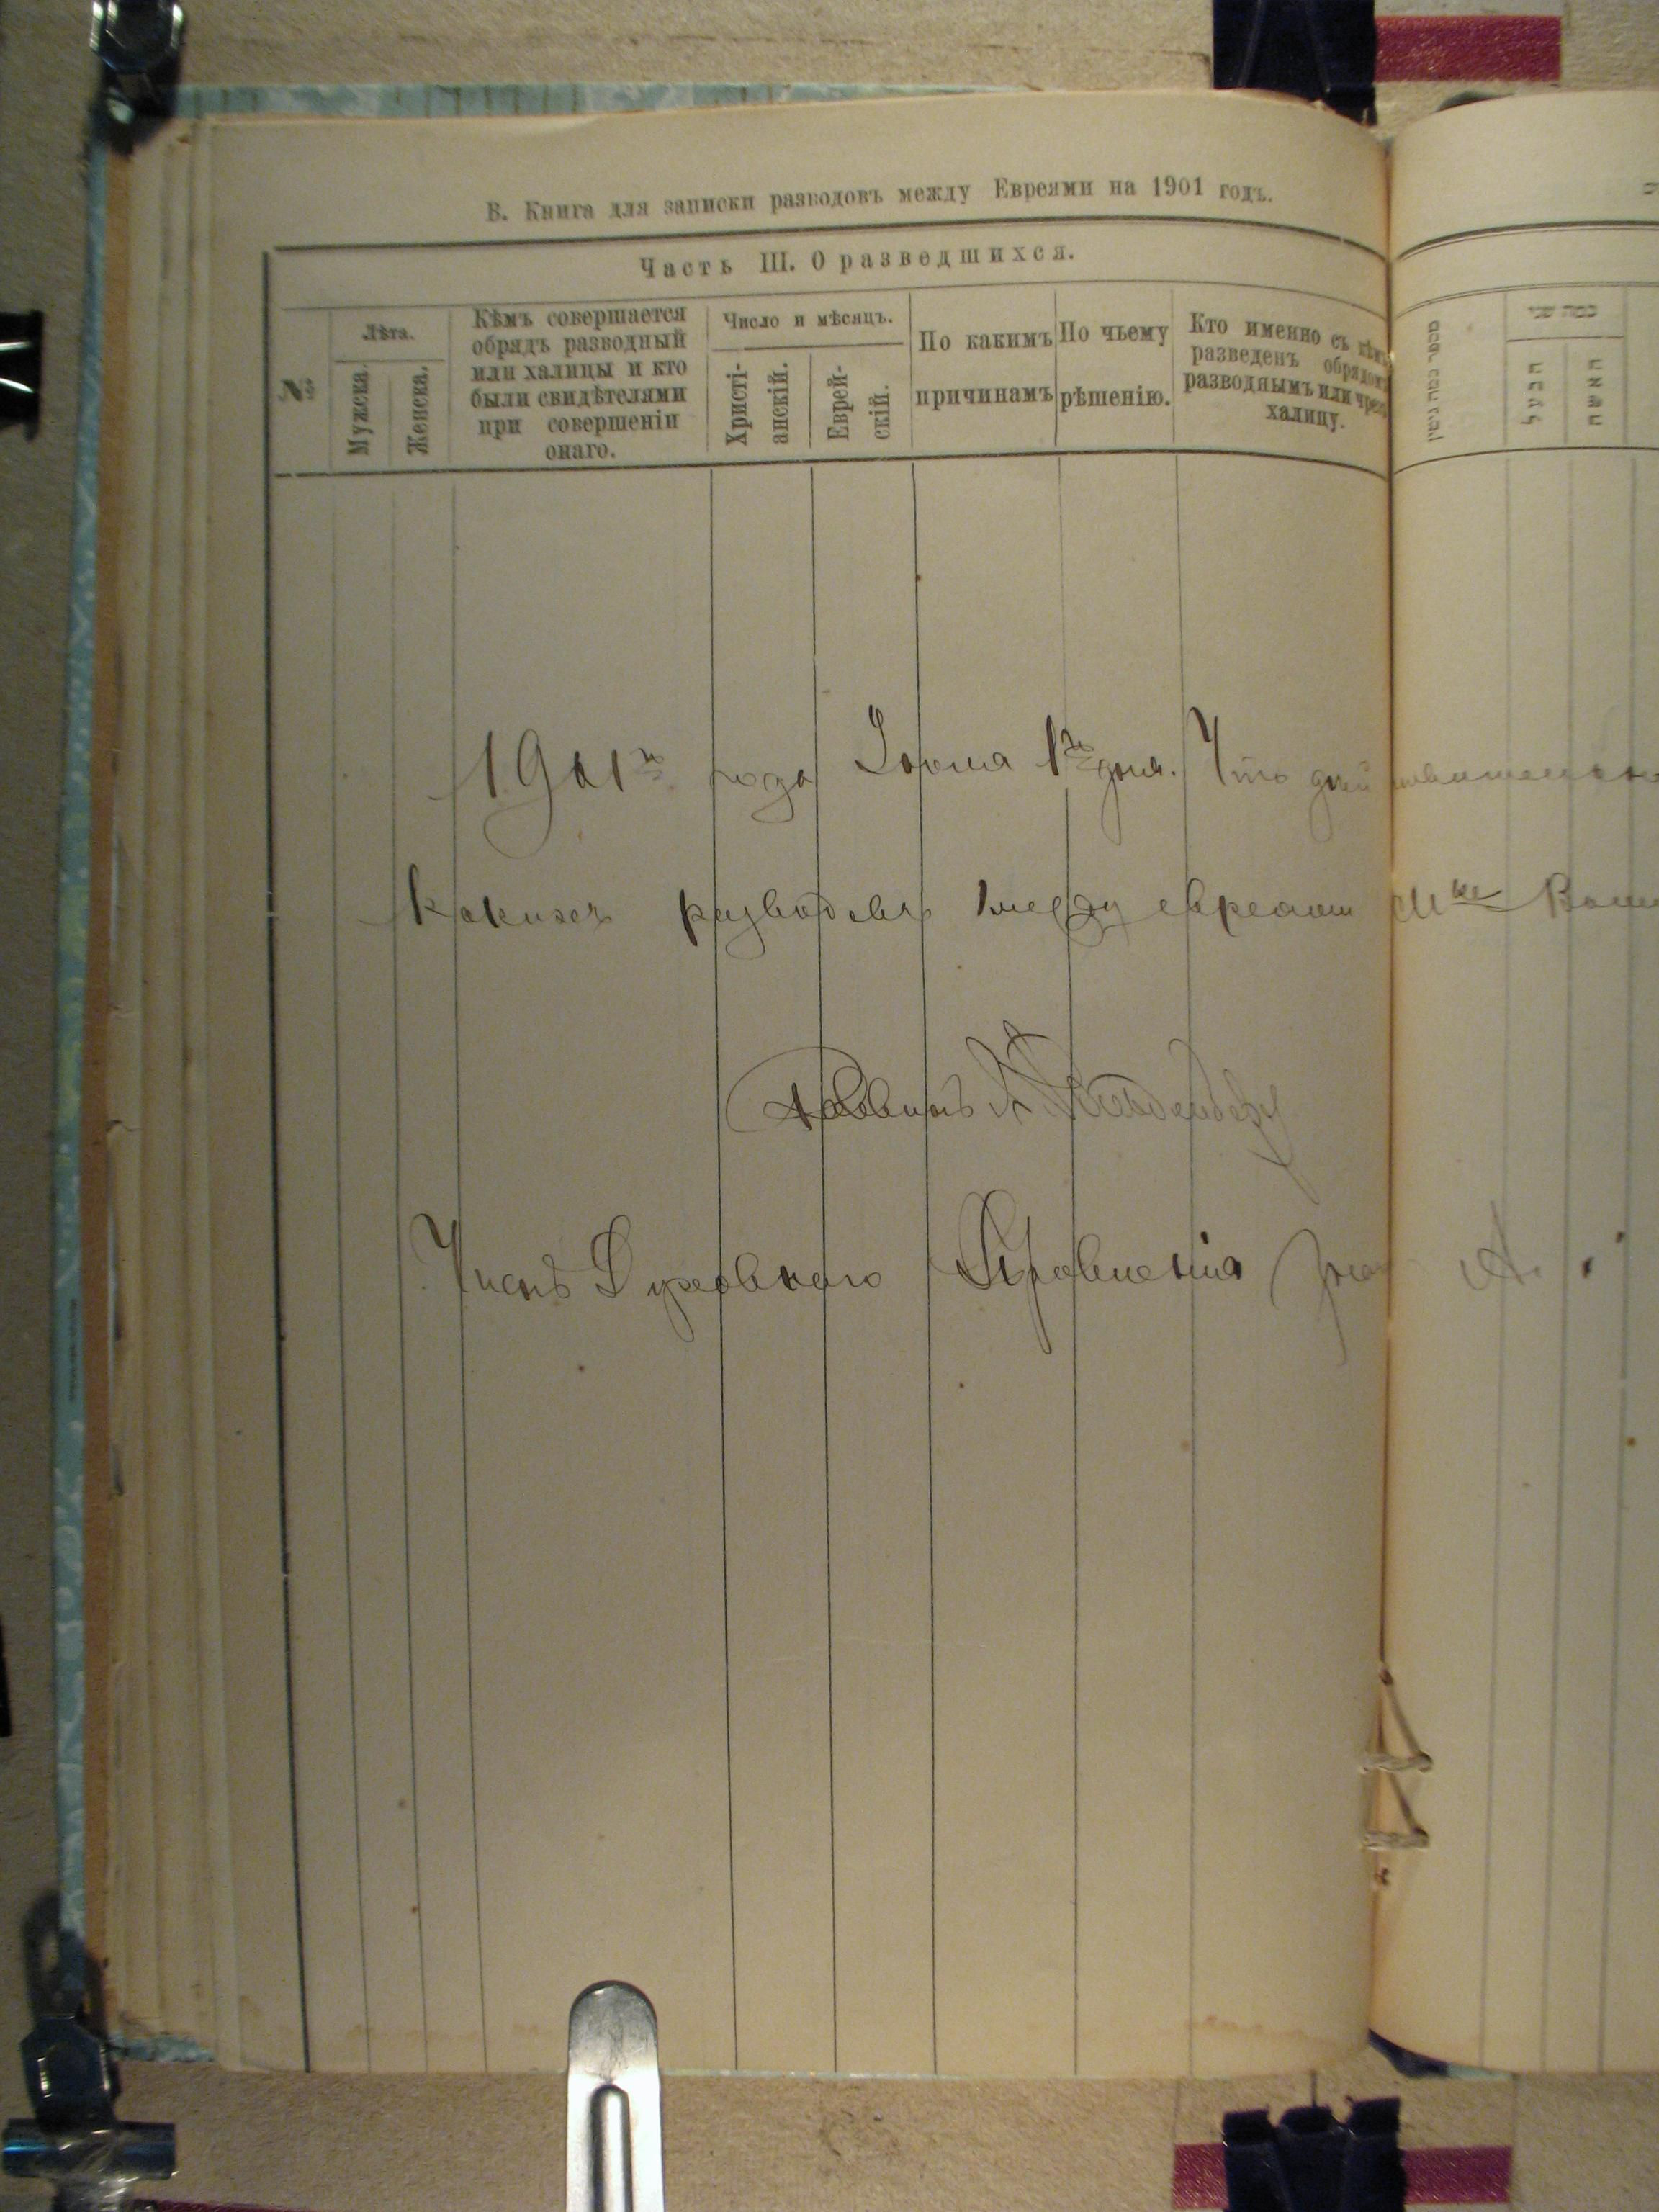 В. Книга для записки разводовъ между Евреями на 1901 годъ.
Часть III. О разведшихся.
№
Лѣта.
Мужска.
Женска.
Кѣмъ совершается
обрядъ разводный
или халицы и кто
были свидѣтелями
при совершеніи
онаго.
Число и мѣсяцъ.
Христі-
анскій.
Еврей-
скій.
По какимъ
причинамъ
По чьему
рѣшенію.
Кто именно съ кѣмъ
разведенъ обрядомъ
разводнымъ или чрезъ
халицу.
כמה שני
הבעל
האשה
1901 го года Июля 1го дня. Что
разводовъ между евреями
Раввинъ
Членъ Духовнаго Правленія